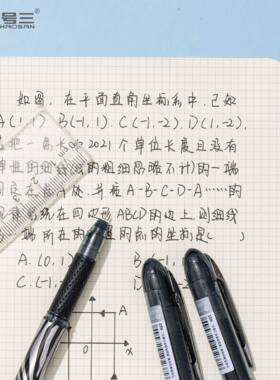 号三
HAOSAN
如图，在平面直角坐标系中，已知
A(1,1) B(-1,1) C(-1,-2) D(1,-2),
把一条长为2021个单位长度且没有
弹性的细线(线的粗细忽略不计)的一端
固定在点A处,并按A-B-C-D-A……的
规律绕在四边形ABCD的边上,则细线
端所在的位置的坐标是( )
A.(0,1) B(-1,
C.(-1,- D
A
0 x